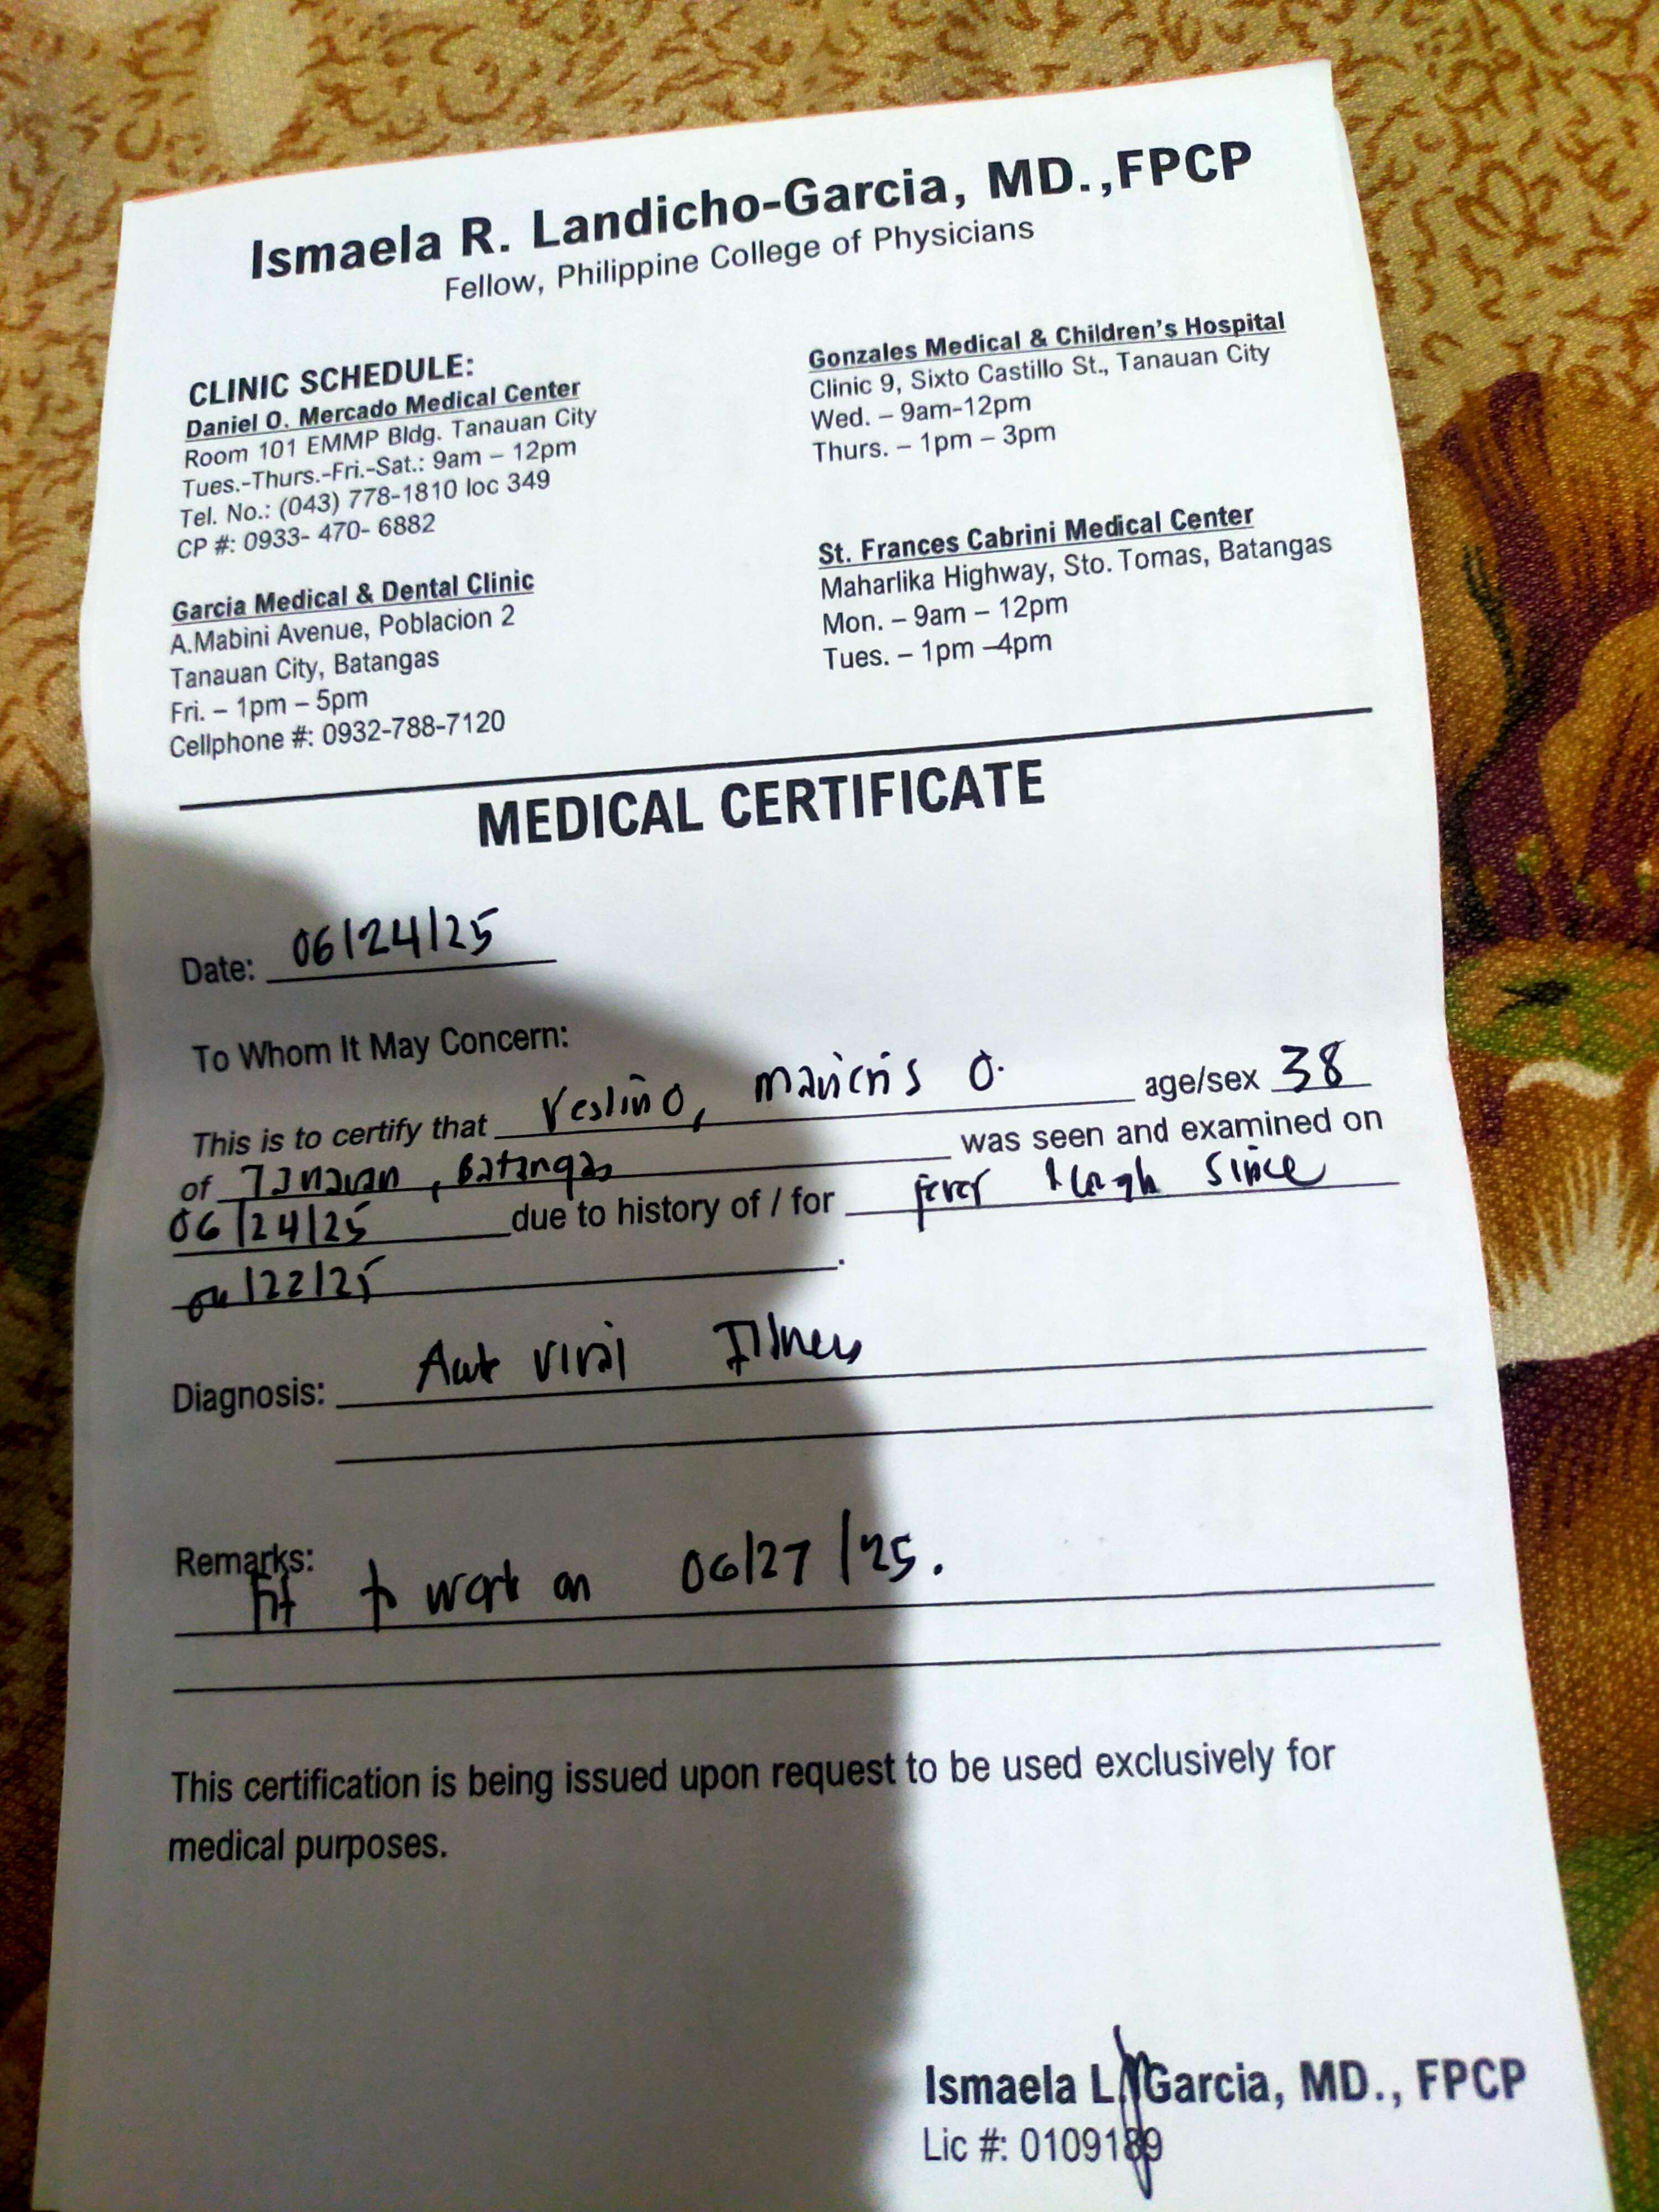 Ismaela R. Landicho-Garcia, MD.,FPCP
Fellow, Philippine College of Physicians
CLINIC SCHEDULE:
Daniel O. Mercado Medical Center
Room 101 EMMP Bldg. Tanauan City
Tues.-Thurs.-Fri.-Sat.: 9am – 12pm
Tel. No.: (043) 778-1810 loc 349
CP #: 0933- 470- 6882
Garcia Medical & Dental Clinic
A.Mabini Avenue, Poblacion 2
Tanauan City, Batangas
Fri. – 1pm – 5pm
Cellphone #: 0932-788-7120
Gonzales Medical & Children's Hospital
Clinic 9, Sixto Castillo St., Tanauan City
Wed. – 9am-12pm
Thurs. – 1pm – 3pm
St. Frances Cabrini Medical Center
Maharlika Highway, Sto. Tomas, Batangas
Mon. – 9am – 12pm
Tues. – 1pm –4pm
MEDICAL CERTIFICATE
Date: 06/24/25
To Whom It May Concern:
This is to certify that Maricris O. age/sex 38
of Tanauan, Batangas was seen and examined on
06/24/25 due to history of / for fever & cough since
06/22/25 .
Diagnosis: Acute Viral Illness
Remarks:
Fit to work on 06/27/25.
This certification is being issued upon request to be used exclusively for
medical purposes.
Ismaela L. Garcia, MD., FPCP
Lic #: 0109189